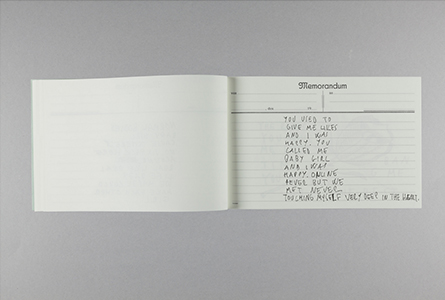 Memorandum
YOU USED TO
GIVE ME
AND I WAS
HAPPY. YOU
CALLED ME
BABY GIRL
AND I WAS
HAPPY. ONLINE
BUT WE
MET NEVER
TOUCHING MYSELF VERY DEEP IN THE